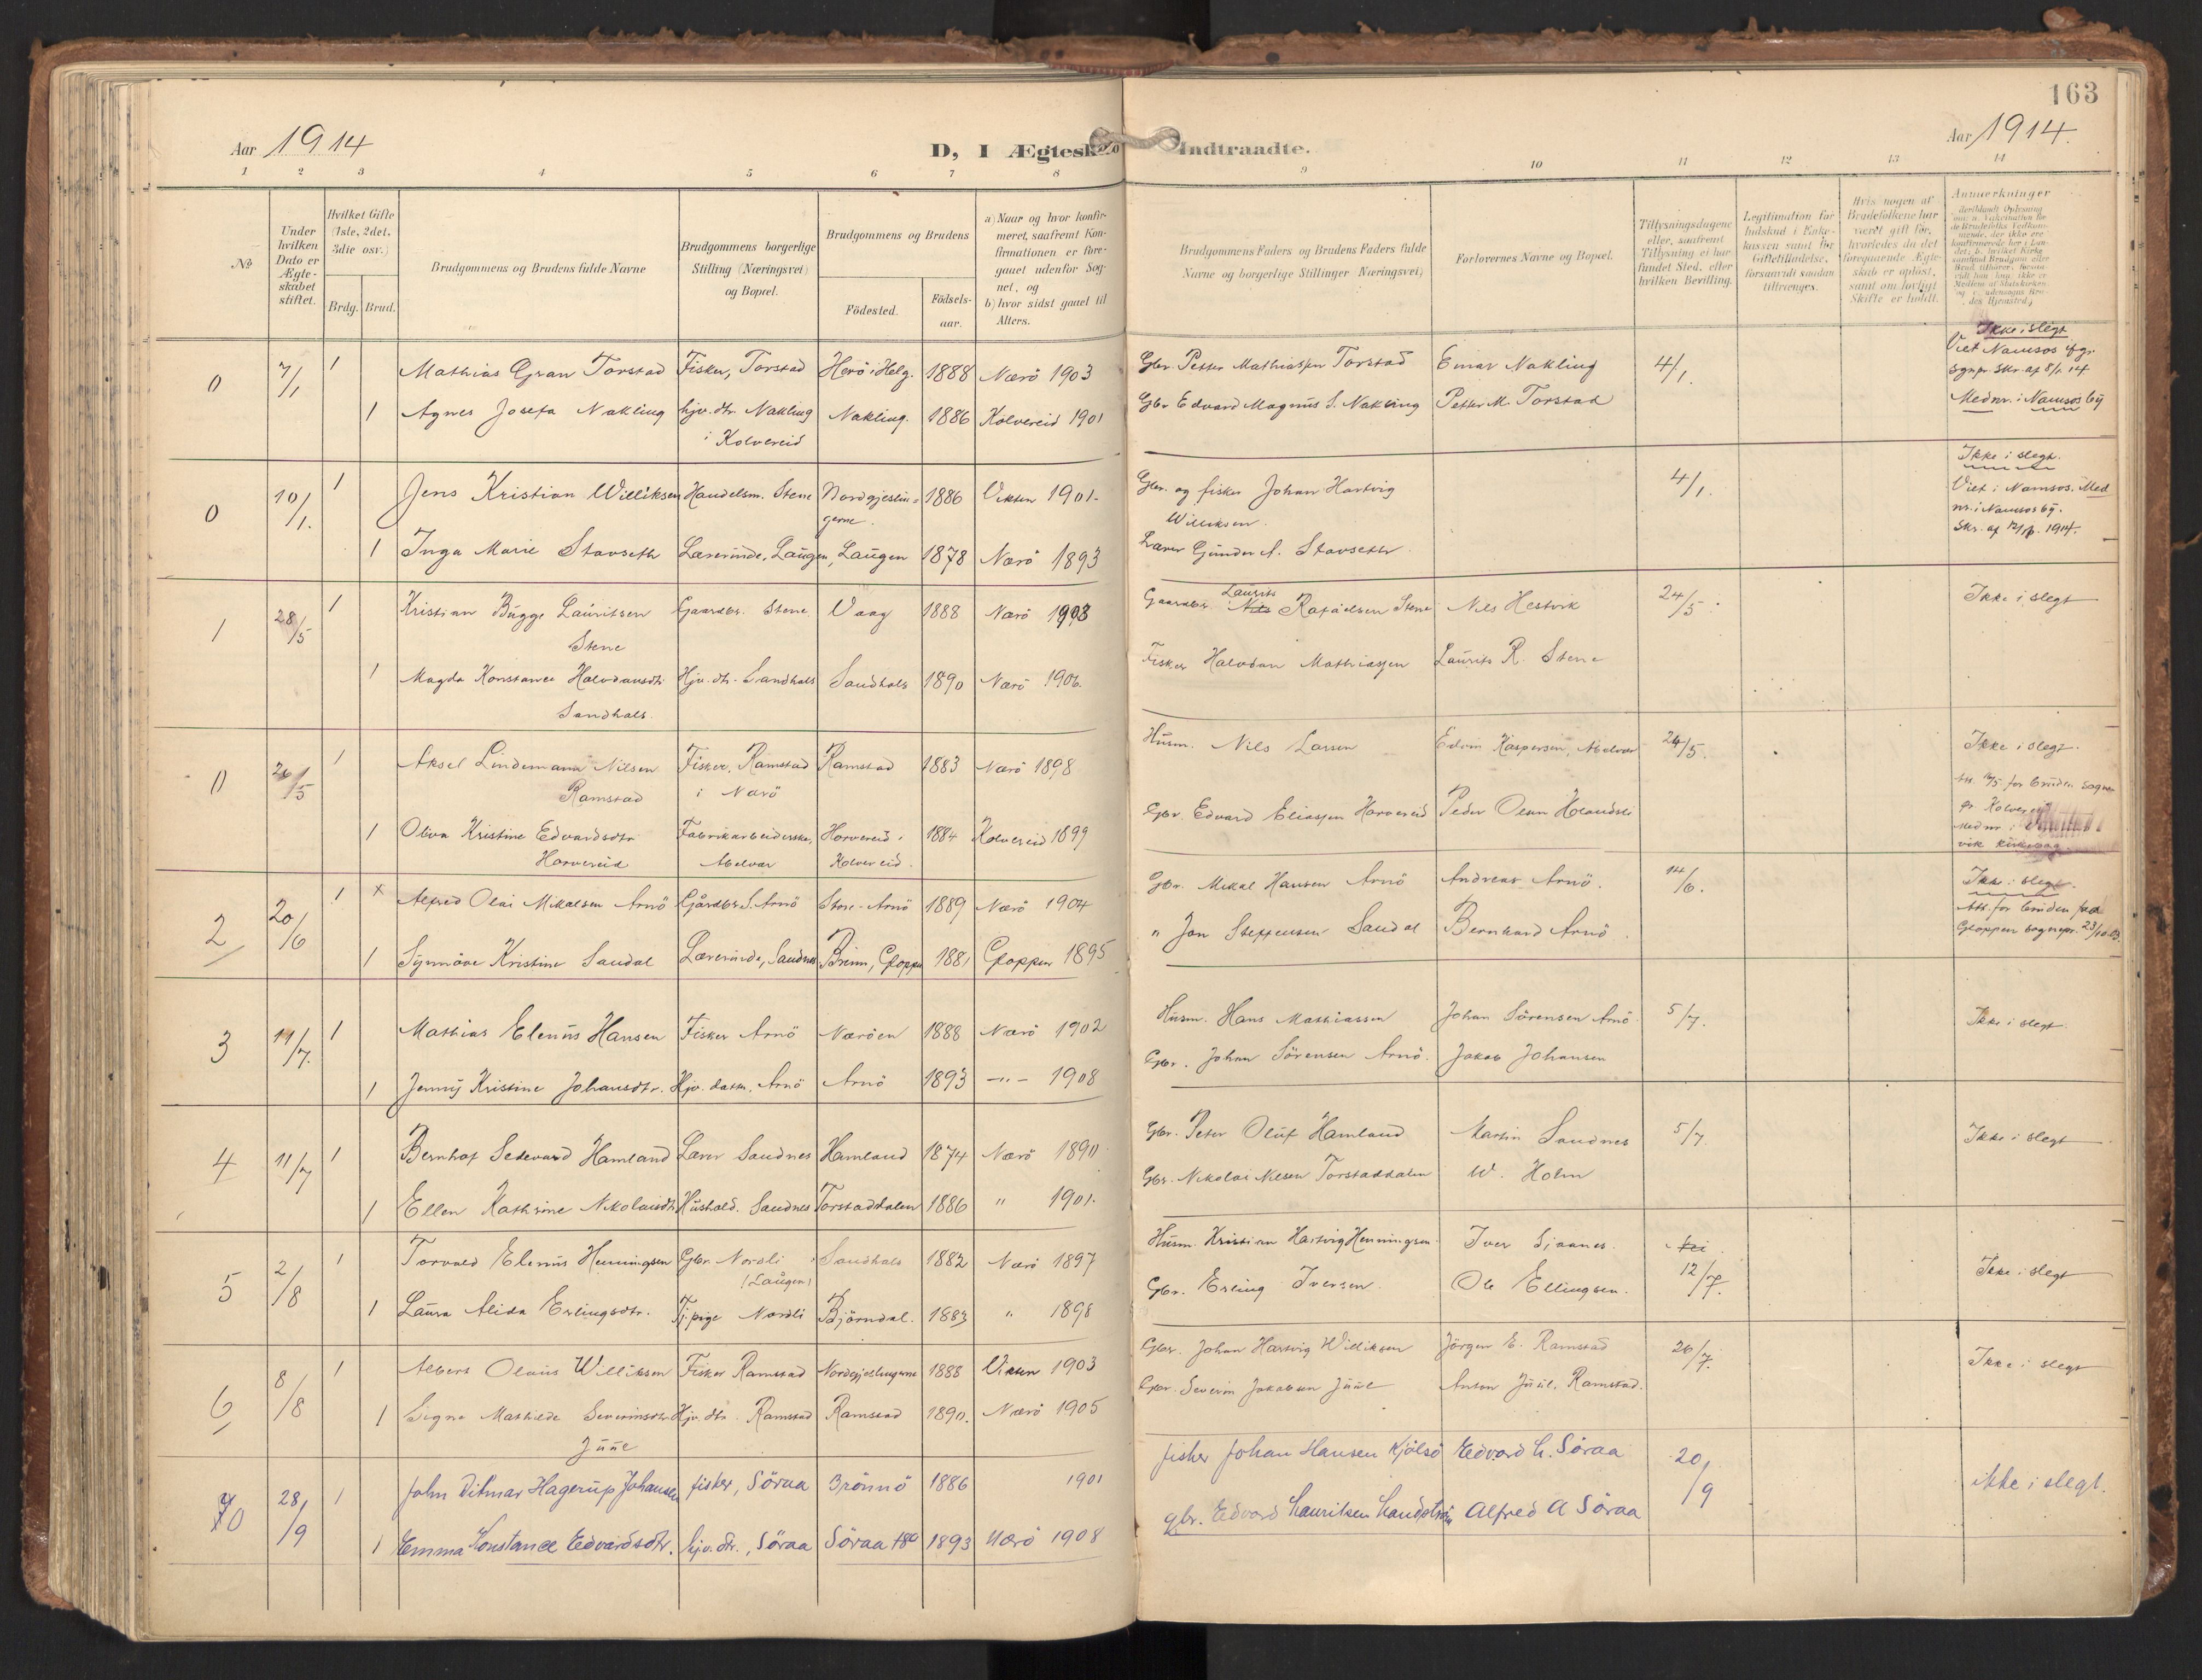 163
Aar 1914
D, I Ægtesk
Indtraadte.
Aar 1914.
1 2 3 4 5 6 7 8 9 10 11 12 13 14
No
Under hvilken Dato er Ægte-skabet stiftet.
Hvilket Gifte (1ste, 2det, 3die osv.)
Brdg. Brud.
Brudgommens og Brudens fulde Navne
Brudgommens borgerlige Stilling (Næringsvei) og Bopæl.
Brudgommens og Brudens
Födested.
Födsels-aar.
a) Naar og hvor konfir-meret, saafremt Kon-firmationen er fore-gaaet udenfor Sog-net, og
b) hvor sidst gaaet til Alters.
Brudgommens Faders og Brudens Faders fulde Navne og borgerlige Stillinger Næringsvei)
Forlovernes Navne og Bopæl.
Tillysningsdagene eller, saafremt Tillysning ei har fundet Sted, efter hvilken Bevilling.
Legitimation for Indskud i Enke-kassen samt for Giftetilladelse, forsaavidt saadan tiltrænges.
Hvis nogen af Brudefolkene har været gift før, hvorledes da det foregaaende Ægte-skab er opløst, samt om lovligt Skifte er holdt.
Anmærkninger
0 7/1 1 Mathias Gran Torstad Fisker, Torstad Herö i Helg. 1888 Nærö 1903 Gbr. Petter Mathiassen Torstad Einar Nakling 4/1. Ikke i slegt
Viet Namsos
1 Agnes Josefa Nakling hjv. dtr. Nakling i Kolvereid Nakling. 1886 Kolvereid 1901 Gbr Edvard Magnus S. Nakling Petter M. Torstad Mednr. i Namsos by
0 10/1. 1 Jens Kristian Williksen Handelsm. Stene Nordgjeslin-gerne. 1886 Vikten 1901. Gbr. og fisker Johan Hartvig Williksen. 4/1. Ikke i slegt.
Viet i Namsos. Med nr. i Namsos by.
1 Inga Marie Stavseth Lærerinde, Laugen, Laugen 1878 Nærö 1893 Lærer Gunder A. Stavseth
1 28/5 1 Kristian Bugge Lauritsen Stene Gaardbr. Stene Vaag 1888 Nærö 1903 Gaardbr. Laurits Rafaelsen Stene Nils Hestvik 24/5. Ikke i slegt
1 Magda Konstance Halvdansdtr Sandhals. Hjv. dtr. Sandhals Sandhals 1890 Nærö 1906. Fisker Halvdan Mathiassen Laurits R. Stene
0 26/5 1 Aksel Lindemann Nilsen Ramstad Fisker, Ramstad i Nærö Ramstad 1883 Nærö 1898 Husm. Nils Larsen Edvin Kaspersen, Abelvær 24/5. Ikke i slegt.
1 Oliva Kristine Edvardsdtr Horvereid Fabrikarbeiderske, Abelvær Horvereid i Kolvereid. 1884 Kolvereid 1899 Gbr. Edvard Eliassen Horvereid Peder Olsen
2 20/6 1 x Alfred Olai Mikalsen Arnö Gårdbr. S. Arnö Store-Arnö 1889 Nærö 1904 Gbr. Mikal Hansen Arnö Andreas Arnö. 14/6. Ikke i slegt.
1 Synnöve Kristine Sandal Lærerinde, Sandnes Breim, Gloppen 1881 Gloppen 1895 " Jon Steffensen Sandal Bernhard Arnö. Att. for bruden fra Gloppen sognepr. 23/10 03.
3 11/7. 1 Mathias Elenus Hansen Fisker Arnö Næröen 1888 Nærö 1902 Husm. Hans Mathiassen Johan Sörensen Arnö 5/7. Ikke i slegt.
1 Jenny Kristine Johansdtr. Hjv. datter. Arnö Arnö 1893 -"- 1908 Gbr. Johan Sörensen Arnö. Jakob Johansen
4 11/7 1 Bernhof Sedevard Hamland Lærer Sandnes Hamland 1874 Nærö 1890 Gbr. Peter Oluf Hamland Martin Sandnes 5/7 Ikke i slegt
1 Ellen Kathrine Nikolaisdtr Hushold. Sandnes Torstaddalen 1886 " 1901. Gbr. Nikolai Nilsen Torstaddalen W. Holm
5 2/8 1 Torvald Elenus Henningsen Gbr. Nordli (Laugen) Sandhals 1882 Nærö 1897 Husm. Kristian Hartvig Henningsen Iver Sjaanes. 12/7. Ikke i slegt
1 Laura Alida Erlingsdtr. Tj. pige Nordli Björndal. 1883 " 1898 Gbr. Erling Iversen. Ole Ellingsen.
6 8/8 1 Albert Olaus Williksen Fisker Ramstad Nordgjeslingerne 1888 Vikten 1903 Gbr. Johan Hartvig Williksen Jörgen E. Ramstad 26/7. Ikke i slegt
1 Signe Mathilde Severinsdtr Juul Hjv. dtr. Ramstad Ramstad 1890. Nærö 1905 Gbr. Severin Jakobsen Juul Anton Juul, Ramstad.
70 28/9 1 John Ditmar Hagerup Johansen fisker, Söraa Brönnö 1886 1901 fisker Johan Hansen Kjölsö Edvard L. Söraa 20/9 ikke i slegt.
1 Emma Konstanse Edvardsdtr. hjv. dtr., Söraa Söraa 1893 Nærö 1908 gbr. Edvard Lauritsen Landström Alfred A Söraa